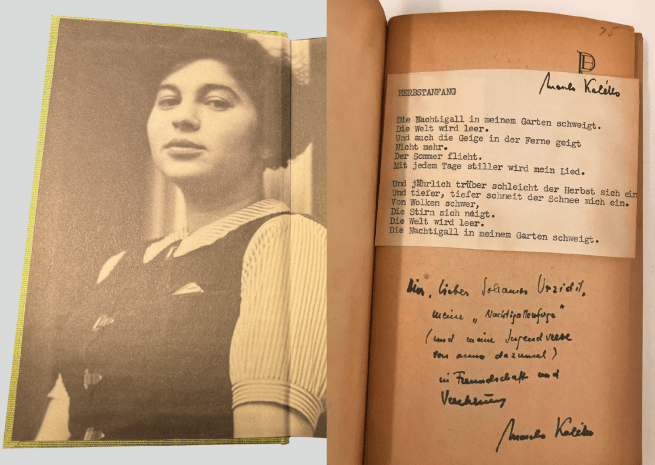 75
Mascha Kaléko
HERBSTANFANG
Die Nachtigall in meinem Garten schweigt.
Die Welt wird leer.
Und auch die Geige in der Ferne geigt
Nicht mehr.
Der Sommer flieht.
Mit jedem Tage stiller wird mein Lied.
Und jährlich trüber schleicht der Herbst sich ein
Und tiefer, tiefer schneit der Schnee mich ein.
Von Wolken schwer,
Die Stirn sich neigt.
Die Welt wird leer.
Die Nachtigall in meinem Garten schweigt.
lieber Johannes Urzidil,
meine "Nachtigallenfuge"
(und meine Jugendverse
von anno dazumal)
in Freundschaft und
Verehrung
Mascha Kaléko